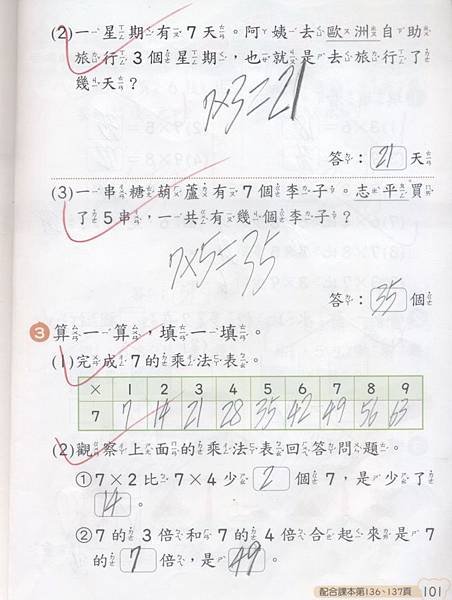 (2)一星期有7天。阿姨去歐洲自助
旅行3個星期，也就是去旅行了
幾天？
7×3=21
答：21天
(3)一串糖葫蘆有7個李子。志平買
了5串，一共有幾個李子？
7×5=35
答：35個
3 算一算，填一填。
(1)完成7的乘法表。
× 1 2 3 4 5 6 7 8 9
7 7 14 21 28 35 42 49 56 63
(2)觀察上面的乘法表回答問題。
①7×2比7×4少2個7，是少了
14。
②7的3倍和7的4倍合起來是7
的7倍，是49。
配合課本第136、137頁 101